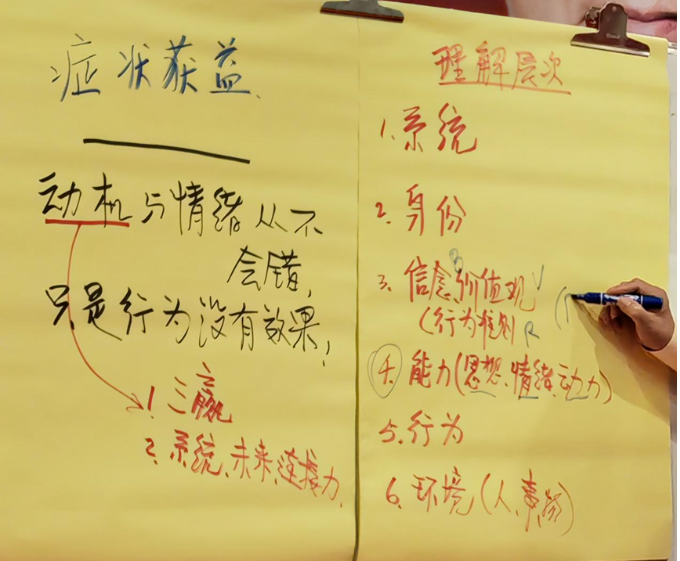 症状获益
动机与情绪从不
会错,
只是行为没有效果!
1. 三赢
2. 系统、未来、连接力
理解层次
1. 系统
2. 身份
B
3. 信念、价值观 V
(行为准则 R
4. 能力(思想、情绪、动力)
5. 行为
6. 环境(人、事、物)